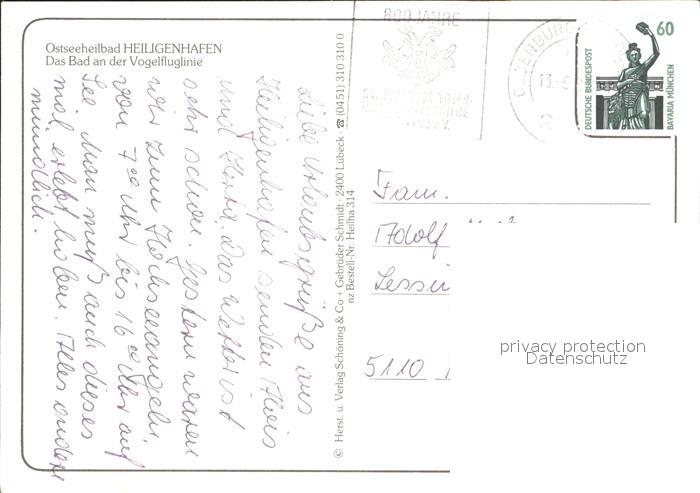 Ostseeheilbad HEILIGENHAFEN
Das Bad an der Vogelfluglinie
Liebe Urlaubsgrüße aus
Heiligenhafen senden Alois
und Herta. Das Wetter ist
sehr schön. Gestern waren
wir zum Hochseeangeln.
von 7⁰⁰ Uhr bis 16⁰⁰ Uhr auf
See. Man muß auch dieses
mal erlebt haben. Alles andere
mündlich.
© Herst. u. Verlag Schöning & Co + Gebrüder Schmidt · 2400 Lübeck · ☎ (0451) 310 310 0
nz Bestell-Nr. Heilha 314
800 JAHRE
OLDENBURG
13.-
60
DEUTSCHE BUNDESPOST
BAVARIA MÜNCHEN
Fam.
Adolf
Lessi
5110
privacy protection
Datenschutz